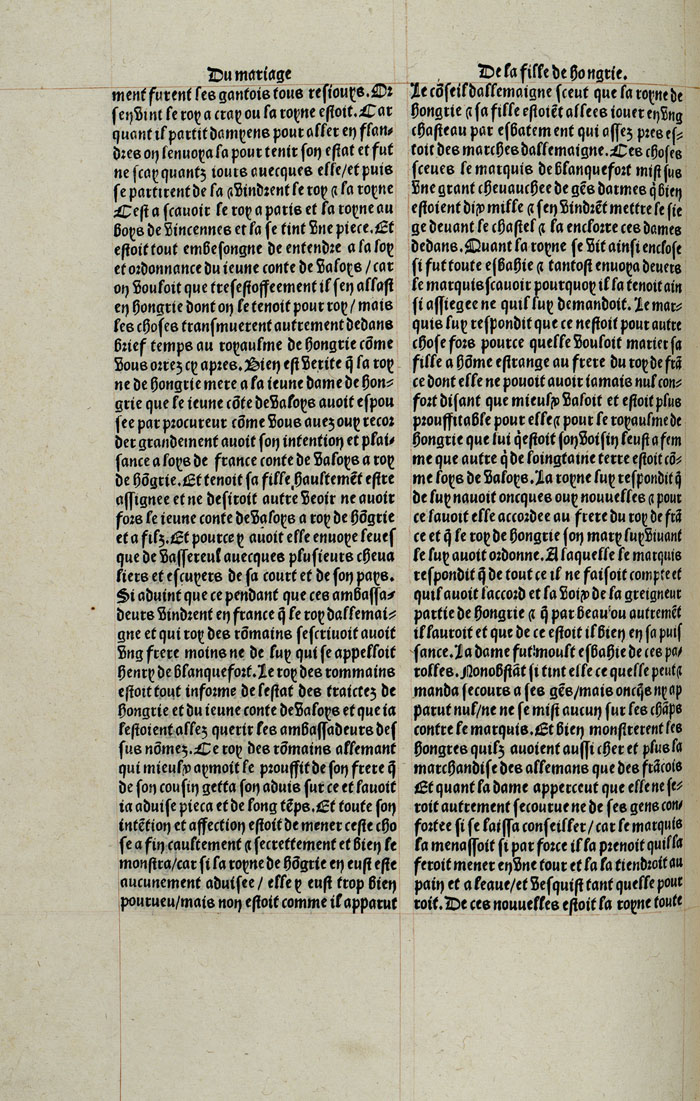 Du mariage
ment furent les gantois tous resiouys. Or
sen vint le roy a cray ou la royne estoit. Car
quant il partit damyens pour aller en flan-
dres on lenuoya la pour tenir son estat et fut
ne scay quantz iours auecques elle/et puis
se partirent de la ⁊ vindrent le roy ⁊ la royne
Cest a scauoir le roy a paris et la royne au
boys de vincennes et la se tint vne piece. Et
estoit tout embesongne de entendre a la loy
et ordonnance du ieune conte de valoys/car
on vouloit que tresestoffeement il sen allast
en hongrie dont on le tenoit pour roy/mais
les choses transmuerent autrement dedans
brief temps au royaulme de hongrie cõme
vous orrez cy apres. Bien est verite q̃ la roy
ne de hongrie mere a la ieune dame de hon-
grie que le ieune cõte de valoys auoit espou
see par procureur cõme vous auez ouy recor
der grandement auoit son intention et plai-
sance a loys de france conte de valoys a roy
de hõgrie. Et tenoit sa fille haultemẽt estre
assignee et ne desiroit autre veoir ne auoir
fors le ieune conte de valoys a roy de hõgrie
et a filz. Et pource y auoit elle enuoye leues
que de vassereul auecques plusieurs cheua
liers et escuyers de sa court et de son pays.
Si aduint que ce pendant que ces ambassa-
deurs vindrent en france q̃ le roy dallemai-
gne et qui roy des rõmains sescriuoit auoit
vng frere moins ne de luy qui se appelloit
henry de blanquefort. Le roy des rommains
estoit tout informe de lestat des traictez de
hongrie et du ieune conte de valoys et que ia
lestoient allez querir les ambassadeurs des
sus nõmez. Ce roy des rõmains allemant
qui mieulx aymoit le prouffit de son frere q̃
de son cousin getta son aduis sur ce et lauoit
ia aduise pieca et de long tẽps. Et toute son
intẽtion et affection estoit de mener ceste cho
se a fin caultement ⁊ secrettement et bien le
monstra/car si la royne de hõgrie en eust este
aucunement aduisee/elle y eust trop bien
pourueu/mais non estoit comme il apparut
De la fille de hongrie.
Le cõseil dallemaigne sceut que la royne de
hongrie ⁊ sa fille estoiẽt allees iouer en vng
chasteau par esbatement qui assez pres es-
toit des marches dallemaigne. Ces choses
sceues le marquis de blanquefort mist sus
vne grant cheuauchee de gẽs darmes q̃ bien
estoient dix mille ⁊ sen vindrẽt mettre le sie
ge deuant le chastel ⁊ la enclorre ces dames
dedans. Quant la royne se vit ainsi enclose
si fut toute esbahie ⁊ tantost enuoya deuers
le marquis scauoir pourquoy il la tenoit ain
si assiegee ne quil luy demandoit. Le mar-
quis luy respondit que ce nestoit pour autre
chose fors pource quelle vouloit marier sa
fille a hõme estrange au frere du roy de frã
ce dont elle ne pouoit auoir iamais nul con-
fort disant que mieulx valoit et estoit plus
prouffitable pour elle ⁊ pour le royaulme de
hongrie que lui q̃ estoit son voisin leust a fem
me que autre q̃ de loingtaine terre estoit cõ-
me loys de valoys. La royne luy respondit q̃
de luy nauoit oncques ouy nouuelles ⁊ pour
ce lauoit elle accordee au frere du roy de frã
ce et q̃ le roy de hongrie son mary luy viuant
le luy auoit ordonne. A laquelle le marquis
respondit q̃ de tout ce il ne faisoit compte et
quil auoit laccord et la voix de la greigneur
partie de hongrie ⁊ q̃ par beau/ou autremẽt
il lauroit et que de ce estoit il bien en sa puis
sance. La dame fut moult esbahie de ces pa-
rolles. Nonobstãt si tint elle ce quelle peut ⁊
manda secours a ses gẽs/mais oncq̃s ny ap
parut nul/ne ne se mist aucun sur les chãps
contre le marquis. Et bien monstrerent les
hongres quilz auoient aussi cher et plus la
marchandise des allemans que des frãcois
Et quant la dame apperceut que elle ne se-
roit autrement secourue ne de ses gens con-
fortee si se laissa conseiller/car le marquis
la menassoit si par force il la prenoit quil la
feroit mener en vne tour et la la tiendroit au
pain et a leaue/et vesquist tant quelle pour
roit. De ces nouuelles estoit la royne toute